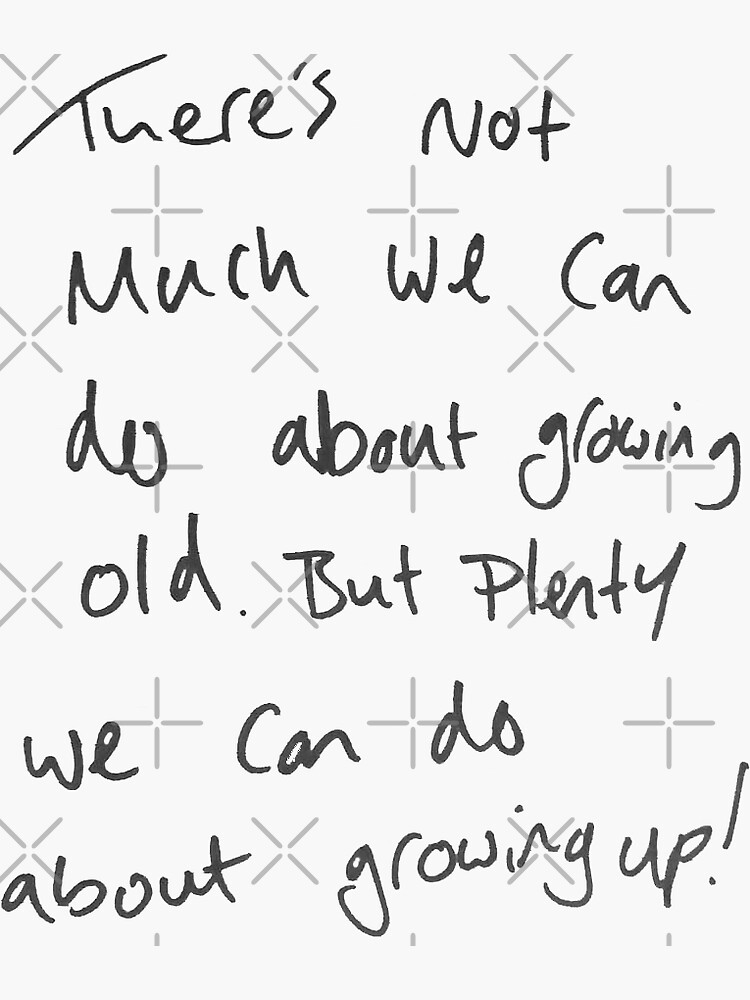 There's Not
Much we can
do about growing
old. But Plenty
we can do
about growing up!